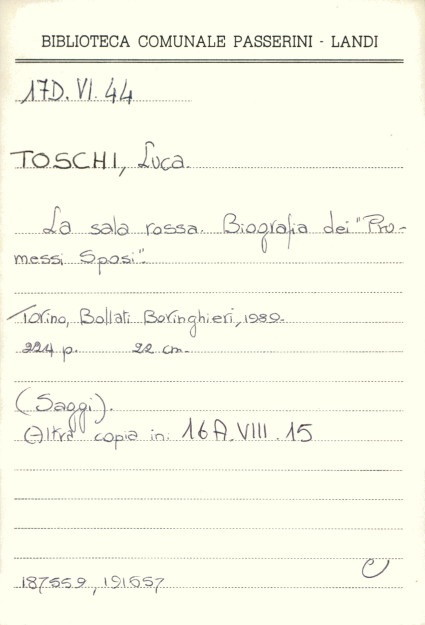 BIBLIOTECA COMUNALE PASSERINI - LANDI
17D. VI. 44
TOSCHI, Luca.
La sala rossa. Biografia dei "Pro-
messi Sposi".
Torino, Bollati Boringhieri, 1989.
224 p. 22 cm.
(Saggi).
Altra copia in: 16A. VIII. 15
C
187559, 191557